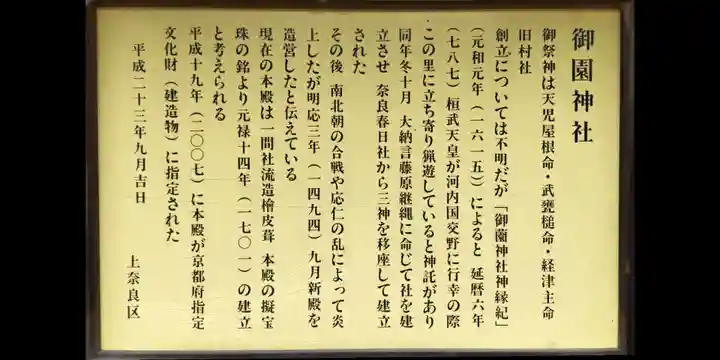 御園神社
御祭神は天児屋根命・武甕槌命・経津主命
旧村社
創立については不明だが「御薗神社神縁紀」
(元和元年(一六一五))によると 延暦六年
(七八七)桓武天皇が河内国交野に行幸の際
この里に立ち寄り猟遊していると神託があり
同年冬十月 大納言藤原継縄に命じて社を建
立させ 奈良春日社から三神を移座して建立
された
その後 南北朝の合戦や応仁の乱によって炎
上したが明応三年(一四九四)九月新殿を
造営したと伝えている
現在の本殿は一間社流造檜皮葺 本殿の擬宝
珠の銘より元禄十四年(一七〇一)の建立
と考えられる
平成十九年(二〇〇七)に本殿が京都府指定
文化財(建造物)に指定された
平成二十三年九月吉日
上奈良区